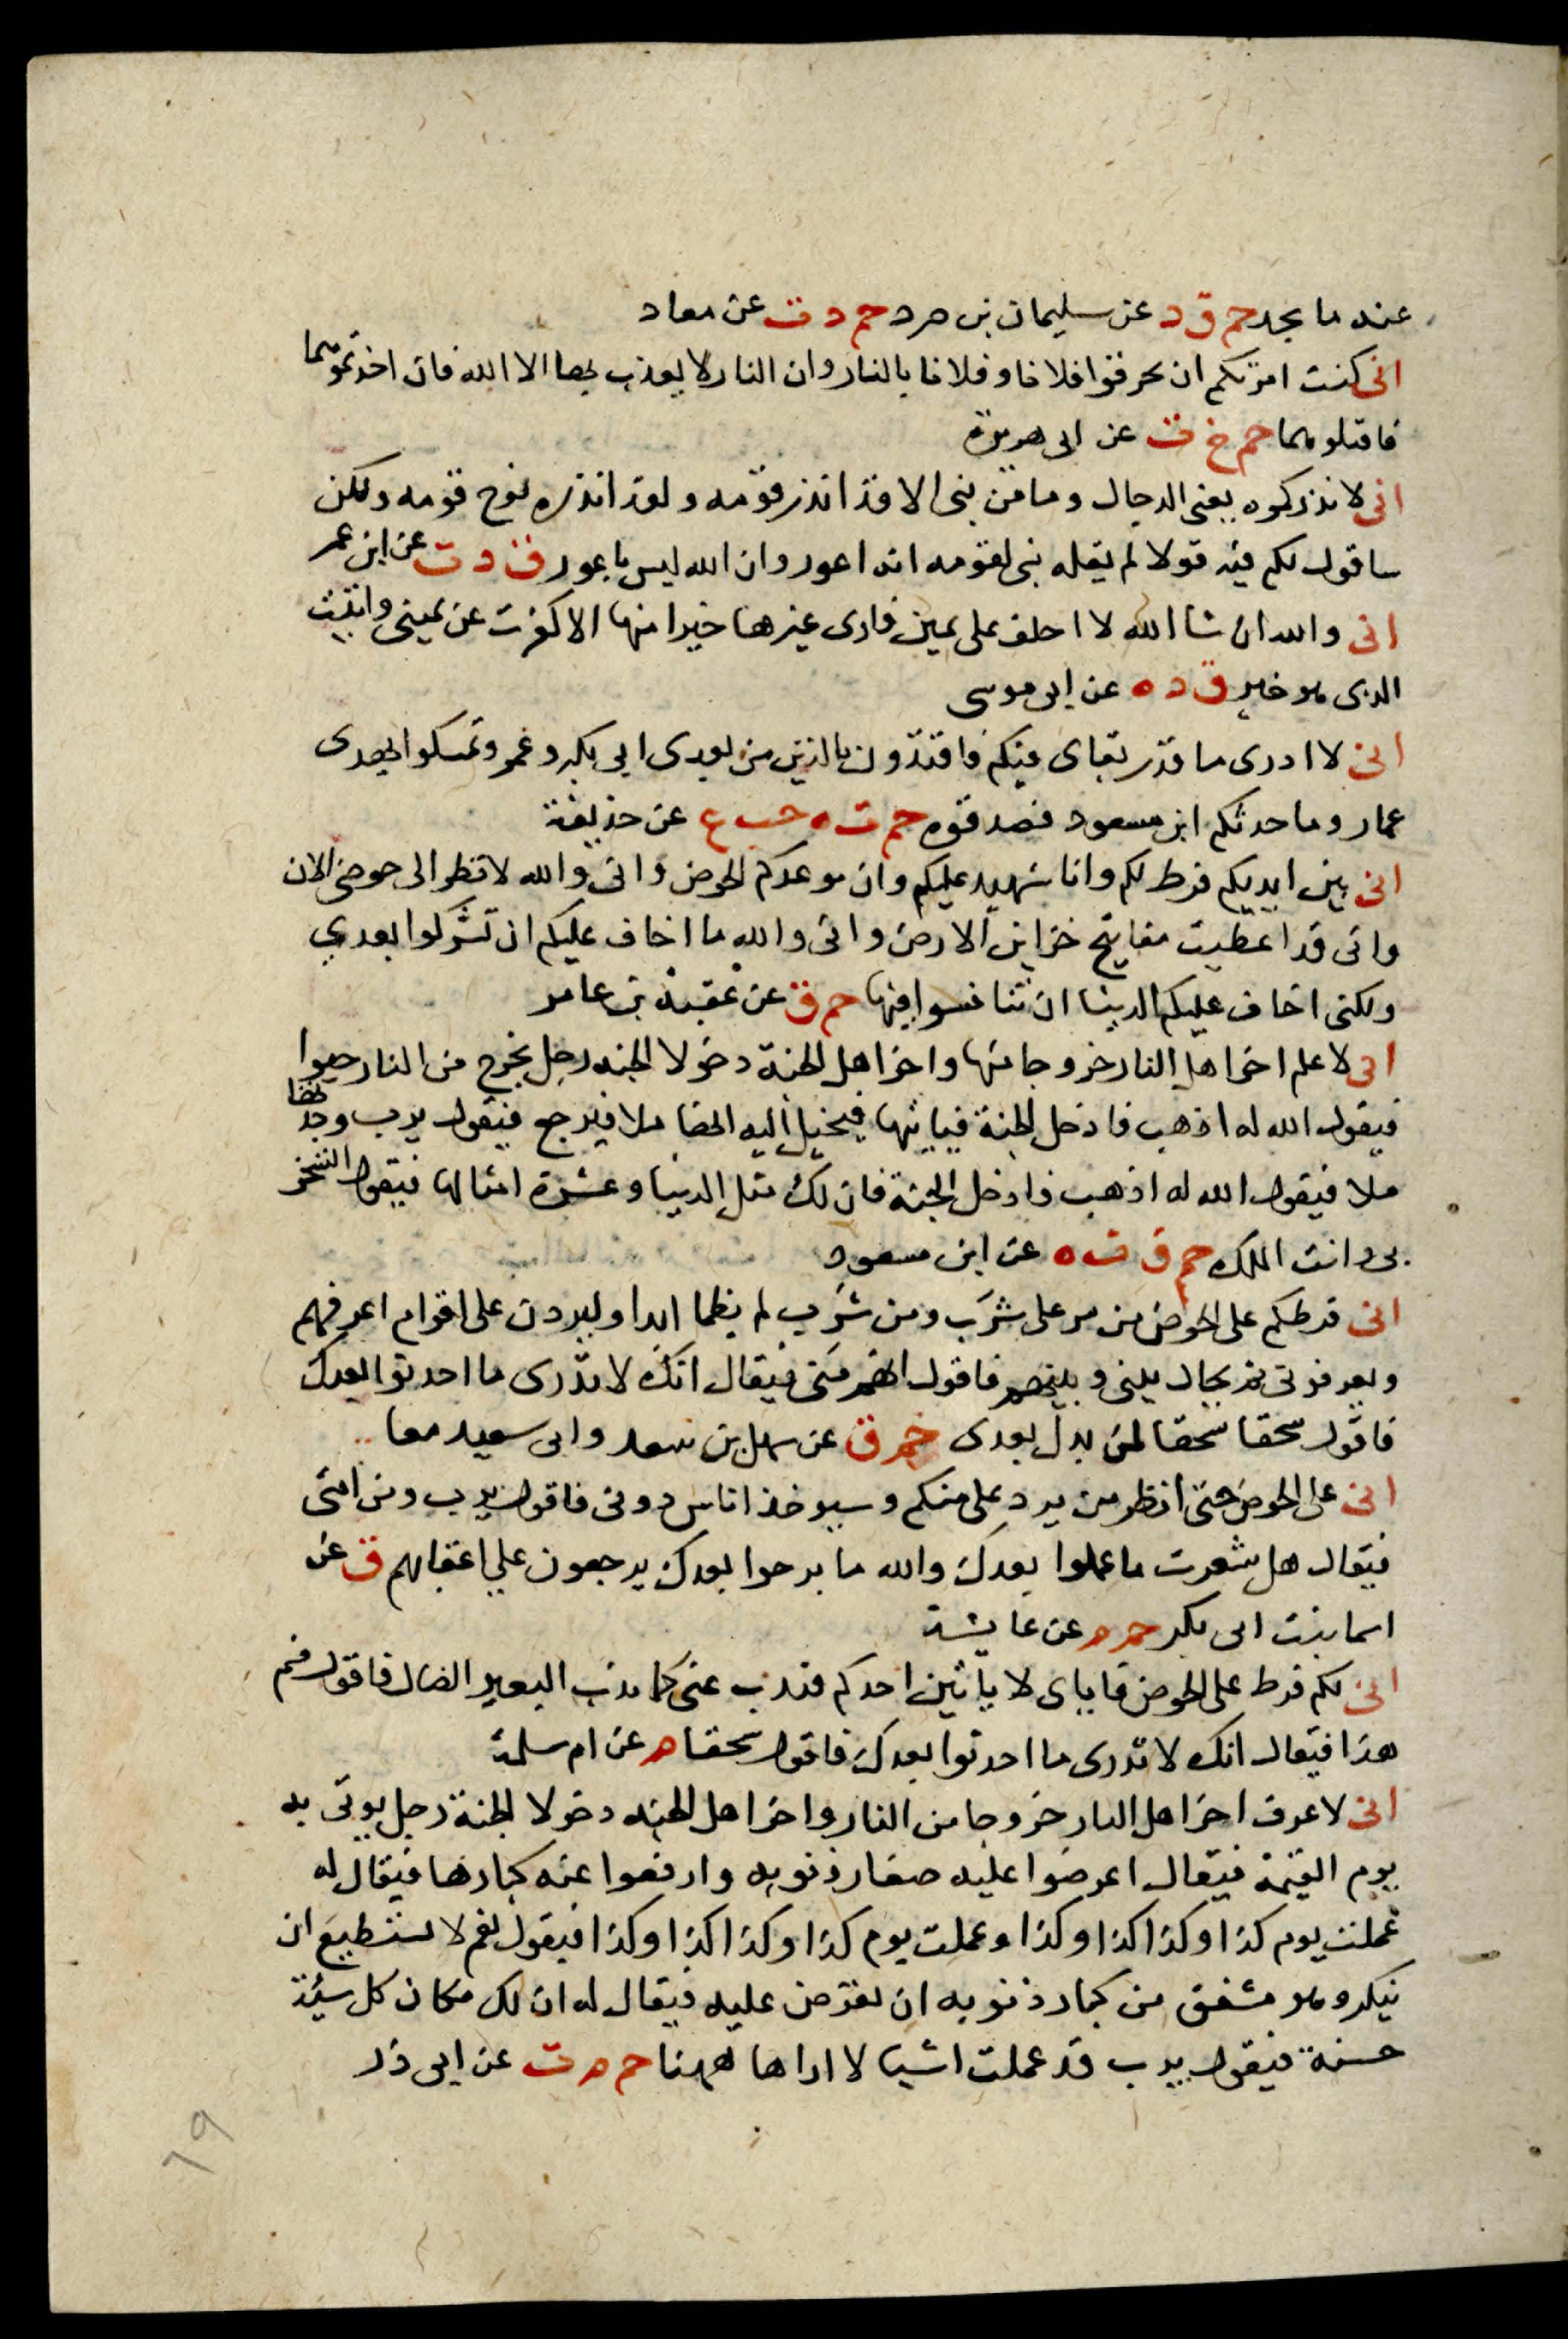 عنه ما يجد حم ق د عن سليمان بن صرد حم د ت عن معاد
انى كنت امرتكم ان تحرقوا فلانا وفلانا بالنار وان النار لا يعذب بها الا الله فان اخذتموهما
فاقتلوهما حم خ ت عن ابى هريرة
انى لانذركموه يعنى الدجال وما من نبى الا قد انذر قومه ولقد انذره نوح قومه ولكن
ساقول لكم فيه قولا لم يقله نبى لقومه انه اعور وان الله ليس باعور ق د ت عن ابن عمر
انى والله ان شا الله لا احلف على يمين فارى غيرها خيرا منها الا كفرت عن يمينى واتيت
الذى هو خير ق د ه عن ابى موسى
انى لا ادرى ما قدر بقاى فيكم فاقتدون بالذين من بعدى ابى بكر وعمر وتمسكوا بهدى
عمار وما حدثكم ابن مسعود فصدقوه حم ت ه حب ع عن حذيفة
انى بين ايديكم فرط لكم وانا شهيد عليكم وان موعدكم الحوض وانى والله لانظر الى حوضى الان
وانى قد اعطيت مفاتيح خزاين الارض وانى والله ما اخاف عليكم ان تشركوا بعدي
ولكنى اخاف عليكم الدينا ان تنافسوا فيها حم ق عن عقبة بن عامر
انى لاعلم اخر اهل النار خروجا منها واخر اهل الجنة دخولا الجنه رجل يخرج من النار حبوا
فيقول الله له اذهب فادخل الجنة فياتيها فيخيل اليه انها ملا فيرجع فيقول يرب وجدتها
ملا فيقول الله له اذهب فادخل الجنة فان لك مثل الدنيا وعشرة امثالها فيقول اتسخر
بى وانت الملك حم ق ت ه عن ابن مسعود
انى فرطكم على الحوض من مر على شرب ومن شرب لم يظما ابدا وليردن على اقوام اعرفهم
ويعرفونى ثم يحال بينى وبينهم فاقول انهم منى فيقال انك لا تدرى ما احدثوا بعدك
فاقول سحقا سحقا لمن بدل بعدى حم ق عن سهل بن سعد وابى سعيد معا
انى على الحوض حتى انظر من يرد على منكم وسيوخذ اناس دونى فاقول يرب ومن امتى
فيقال هل شعرت ما عملوا بعدك والله ما برحوا بعدك يرجعون علي اعقابهم ق عن
اسما بنت ابى بكر حم م عن عايشة
انى لكم فرط على الحوض فاياى لا ياتين احدكم فيذب عنى كما يذب البعير الضال فاقول فيم
هذا فيقال انك لا تدرى ما احدثوا بعدك فاقول سحقا م عن ام سلمة
انى لاعرف اخر اهل النار خروجا من النار واخر اهل الجنه دخولا الجنة رجل يوتى به
يوم القيمة فيقال اعرضوا عليه صغار ذنوبه وارفعوا عنه كبارها فيقال له
عملت يوم كذا وكذا كذا وكذا وعملت يوم كذا وكذا كذا وكذا فيقول نعم لا يستطيع ان
ينكر وهو مشفق من كبار ذنوبه ان تعرض عليه فيقال له ان لك مكان كل سيئة
حسنة فيقول يرب قد عملت اشيا لا اراها ههنا حم م ت عن ابى ذر
٦٩